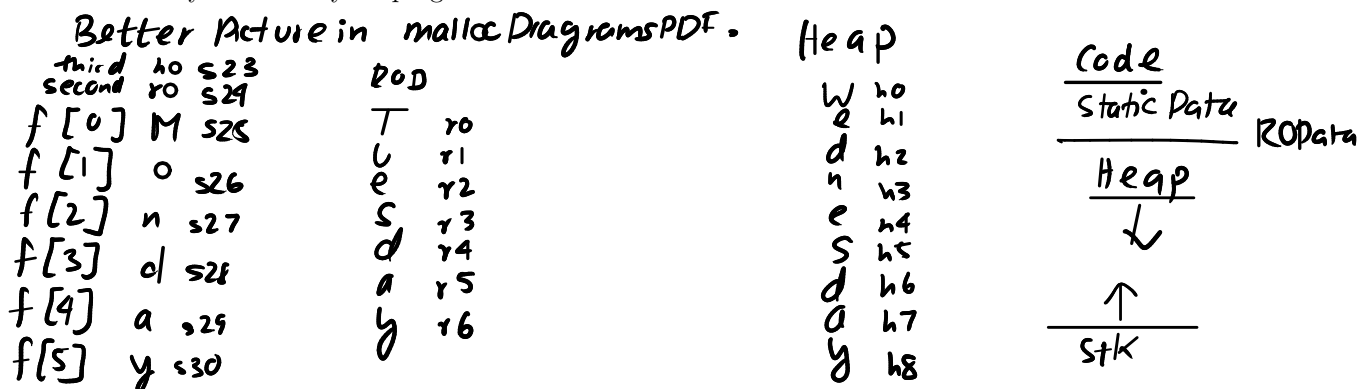 Better Picture in mallocDiagramsPDF.
Heap
third h0 s23
second r0 s24
ROD
f[0] M s25
f[1] o s26
f[2] n s27
f[3] d s28
f[4] a s29
f[5] y s30
T r0
u r1
e r2
s r3
d r4
a r5
y r6
W h0
e h1
d h2
n h3
e h4
s h5
d h6
a h7
y h8
Code
Static Data
ROData
Heap
Stk